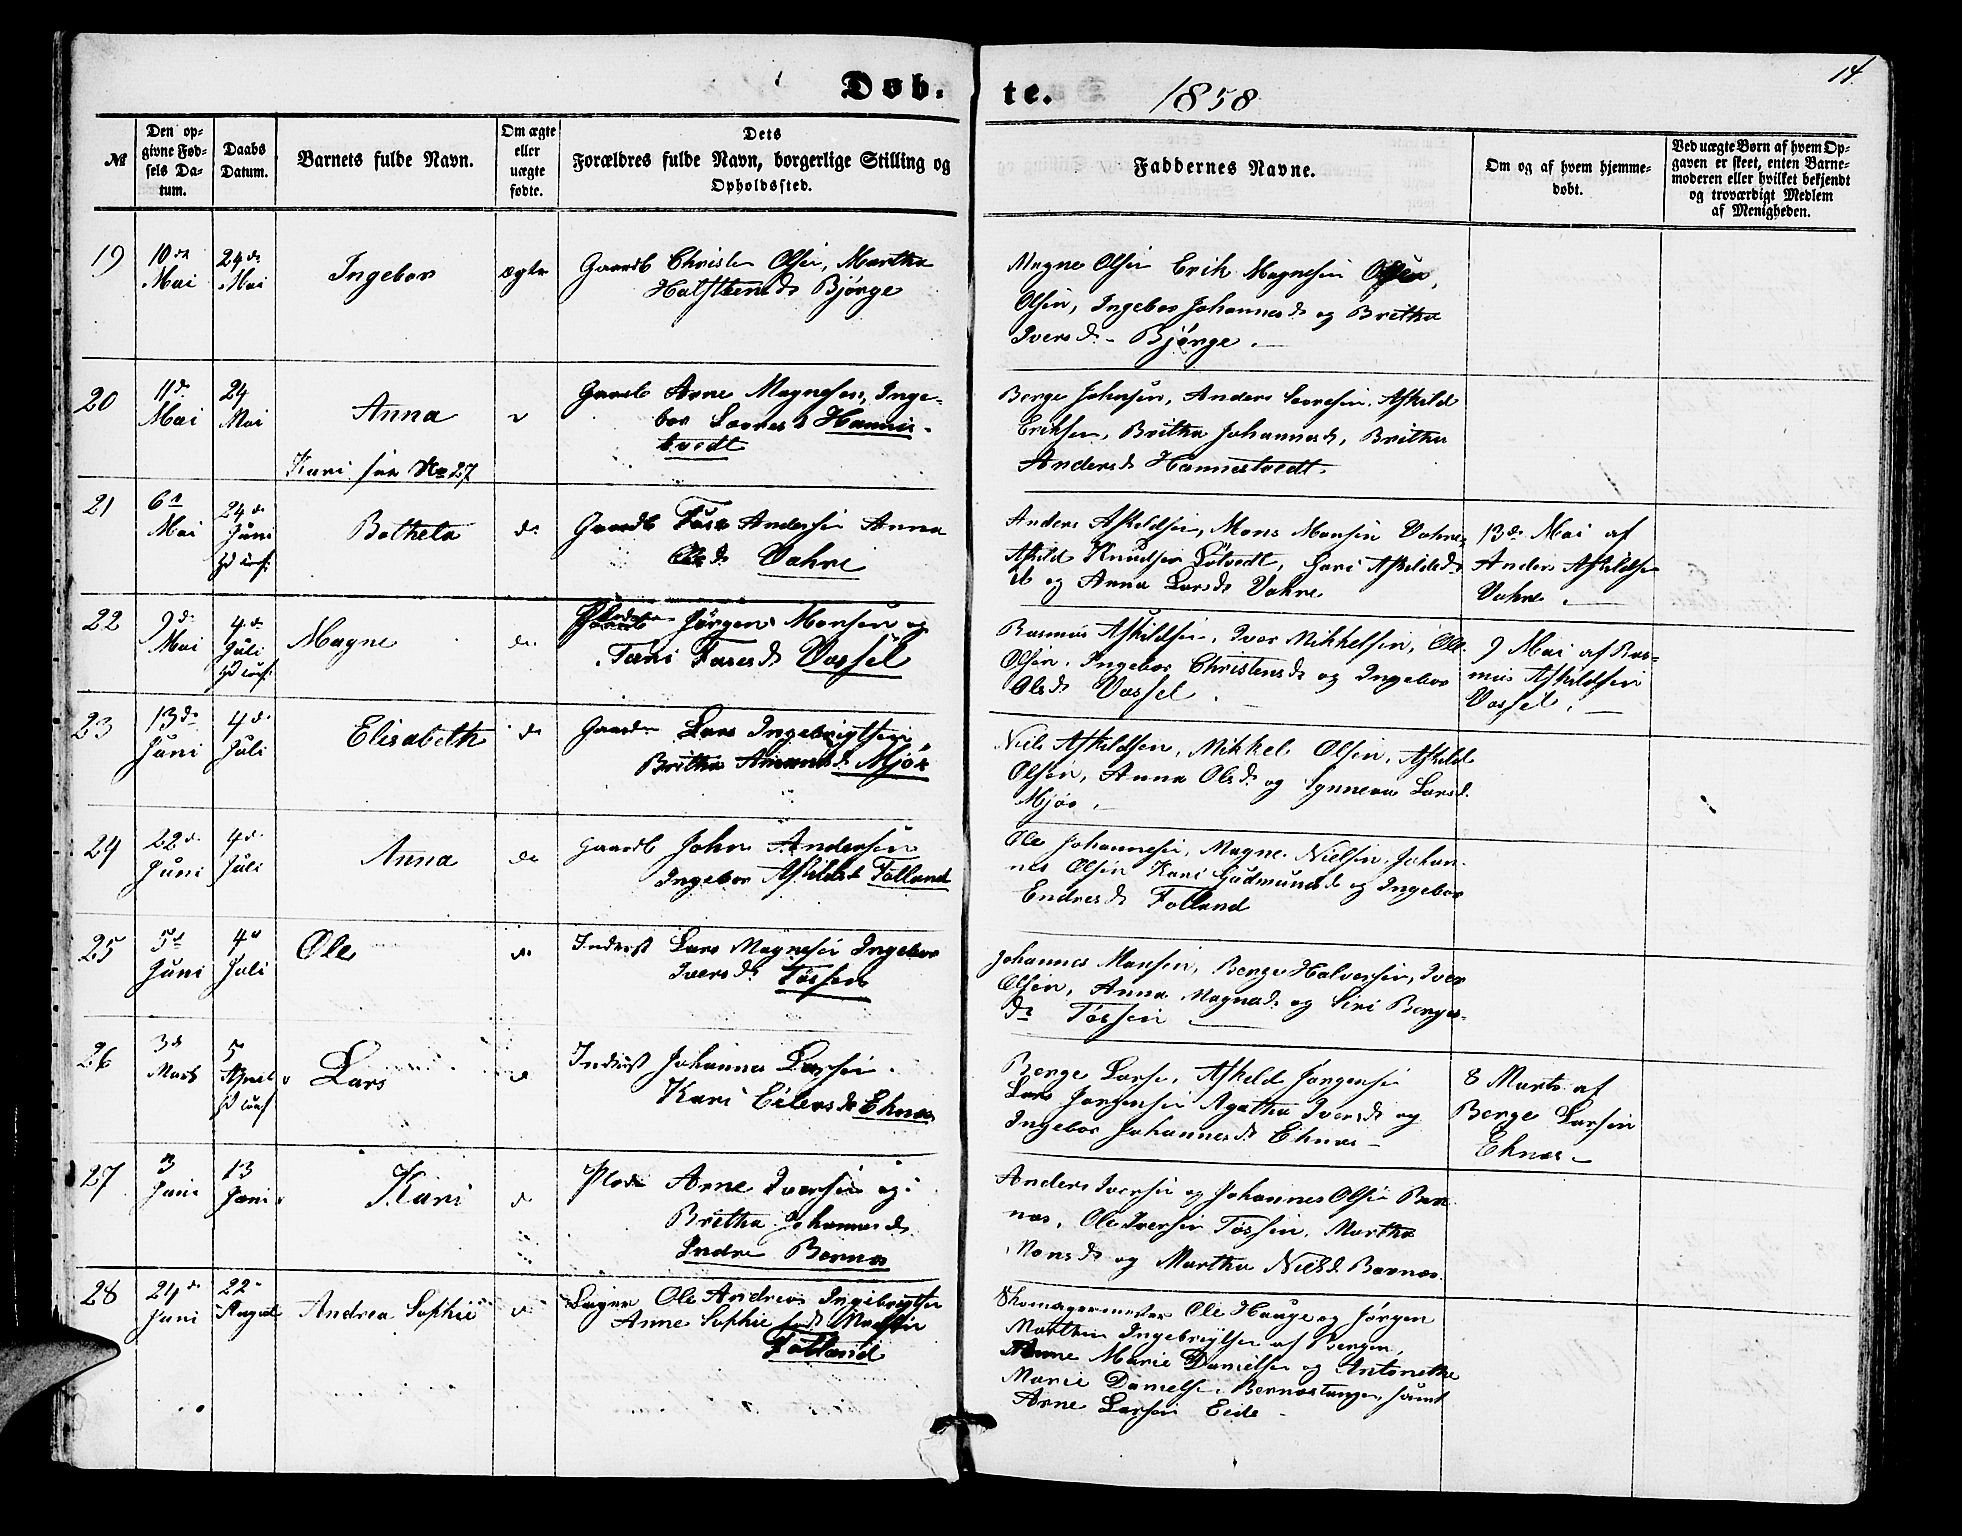 14.
Døb- te. 1858
№
Den op-
givne Fød-
sels Da-
tum.
Daabs
Datum.
Barnets fulde Navn.
Om ægte
eller
uægte
fødte.
Dets
Forældres fulde Navn, borgerlige Stilling og
Opholdssted.
Faddernes Navne.
Om og af hvem hjemme-
døbt.
Ved uægte Børn af hvem Op-
gaven er skeet, enten Barne-
moderen eller hvilket bekjendt
og troværdigt Medlem
af Menigheden.
19
10de
Mai
24de
Mai
Ingebor
ægte
Gaardb Christen Olsen, Martha
Halfsteensd. Bjørge
Magne Olsen Erik Magnesen
Olsen, Ingebor Johannesd. og Britha
Iversd. - Bjørge.
20
11d.
Mai
24
Mai
Anna
Kari see No 27
Gaardb Arne Magnesen, Inge-
bor Hannis-
tvedt
Berge Johnsen, Anders Askild
Eriksen, Britha Johannesd, Britha
Andersd Hannestvedt.
21
6d
Mai
24de
Juni
Bothela
do
Gaardb Andersen Anna
Olsd. Vahre
Anders Askildsen, Mons Monsen Vahre,
Askild Knudsen Askildsd.
og Anna Larsd. Vahre
13de Mai af
Anders Askildsen
Vahre.
22
9d.
Mai
4de
Juli
Magne
do
Jørgen Monsen og
Vassel
Rasmus Askildsen, Iver Mikkelsen, Ole
Olsen, Ingebor Christensd. og Ingebor
Olsd. Vassel.
9 Mai af Ras-
mus Askildsen
Vassel.
23
13de
Juni
4de
Juli
Elisabeth
do
Gaardb Lars Ingebrigtsen
Britha Mjøs
Niels Askildsen, Mikkel Olsen, Askild
Olsen, Anna Olsd. og Synneva Larsd.
Mjøs.
24
22d.
Juni
4d.
Juli
Anna
do
Gaardb John Andersen
Ingebor Askildsd Fotland
Ole Johannesen, Magne Nielsen, Johan-
nes Olsen Kari Gudmundsd og Ingebor
Endresd. Fotland
25
5d
Juni
4d
Juli
Ole
do
Inderst Lars Magnesen Ingebor
Iversd. Tøssen
Johannes Monsen, Berge Halvorsen, Iver
Olsen, Anna Magnesd. og Siri Berges-
d. Tøssen
26
3d
Marts
5
April
Lars
do
Inderst Johannes Larsen
Kari Eilersd. Eknæs
Berge Larsen, Askild Jørgensen
Lars Jørgensen Agatha Iversd og
Ingebor Johannesd. Eknæs
8 Marts af
Berge Larsen
Eknæs
27
3
Juni
13
Juni
Kari
d
Plads Arne Iversen og
Bretha Johannesd.
Indre Bernæs
Anders Iversen og Johannes Olsen Ber-
næs, Ole Iversen Tøssen, Martha
Monsd. og Martha Nielsd. Bernæs.
28
24de
Juni
22
August
Andrea Sophie
do
Ole Andreas Ingebrigtsen
Anne Sophie fød Madsen
Fotland
Skomagermester Ole Hauge og Jørgen
Matthias Ingebrigtsen af Bergen,
Anne Marie Danielsen og Antonethe
Marie Danielsen, Bernæstangen, samt
Arne Larsen Eide